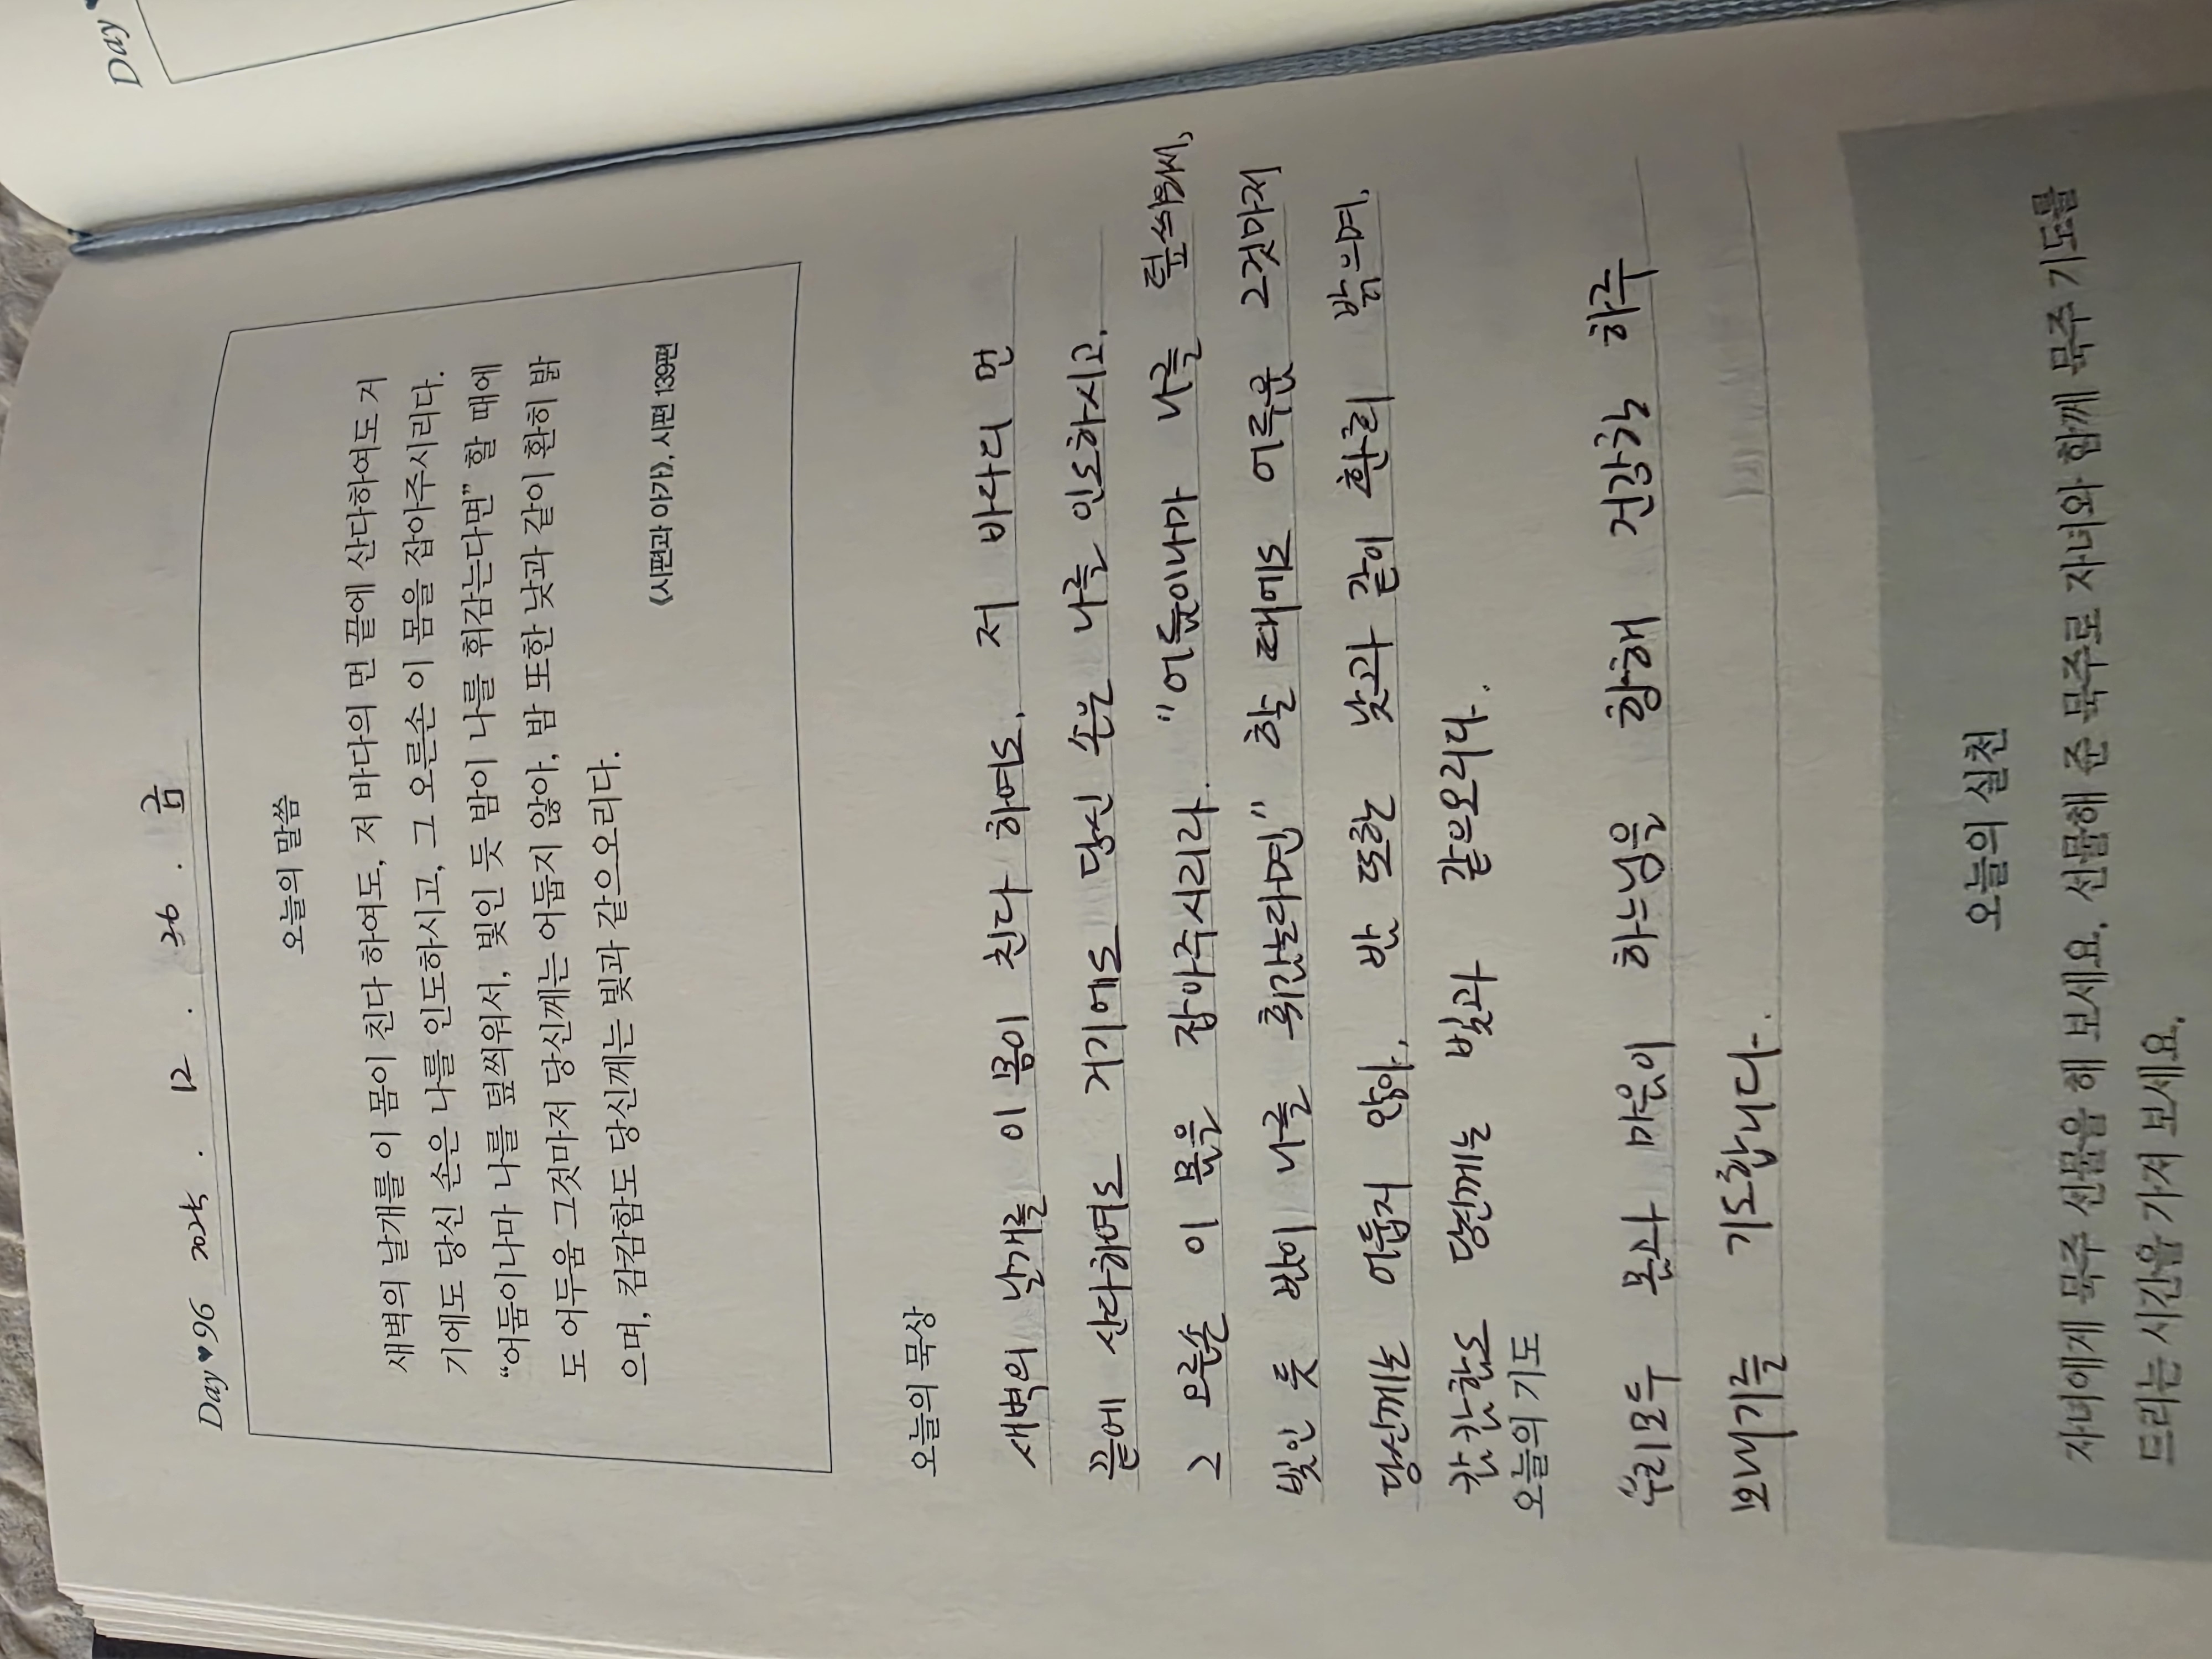 Day
Day♥96 2025 . 12 . 26 . 금
오늘의 말씀
새벽의 날개를 이 몸이 친다 하여도, 저 바다의 먼 끝에 산다하여도 거
기에도 당신 손은 나를 인도하시고, 그 오른손 이 몸을 잡아주시리다.
“어둠이나마 나를 덮씌워서, 빛인 듯 밤이 나를 휘감는다면” 할 때에
도 어두움 그것마저 당신께는 어둡지 않아, 밤 또한 낮과 같이 환히 밝
으며, 캄캄함도 당신께는 빛과 같으오리다.
《시편과 아가》, 시편 139편
오늘의 묵상
새벽의 날개를 이 몸이 친다 하여도, 저 바다의 먼
끝에 산다하여도 거기에도 당신 손은 나를 인도하시고,
그 오른손 이 몸을 잡아주시리라. “어둠이나마 나를 덮씌워서,
빛인 듯 밤이 나를 휘감는다면” 할 때에도 어두움 그것마저
당신께는 어둡지 않아, 밤 또한 낮과 같이 환히 밝으며,
캄캄함도 당신께는 빛과 같으오리다.
오늘의 기도
우리모두 몸과 마음이 하느님을 향해 건강한 하루
보내기를 기도합니다.
오늘의 실천
자녀에게 묵주 선물을 해 보세요. 선물해 준 묵주로 자녀와 함께 묵주 기도를
드리는 시간을 가져 보세요.